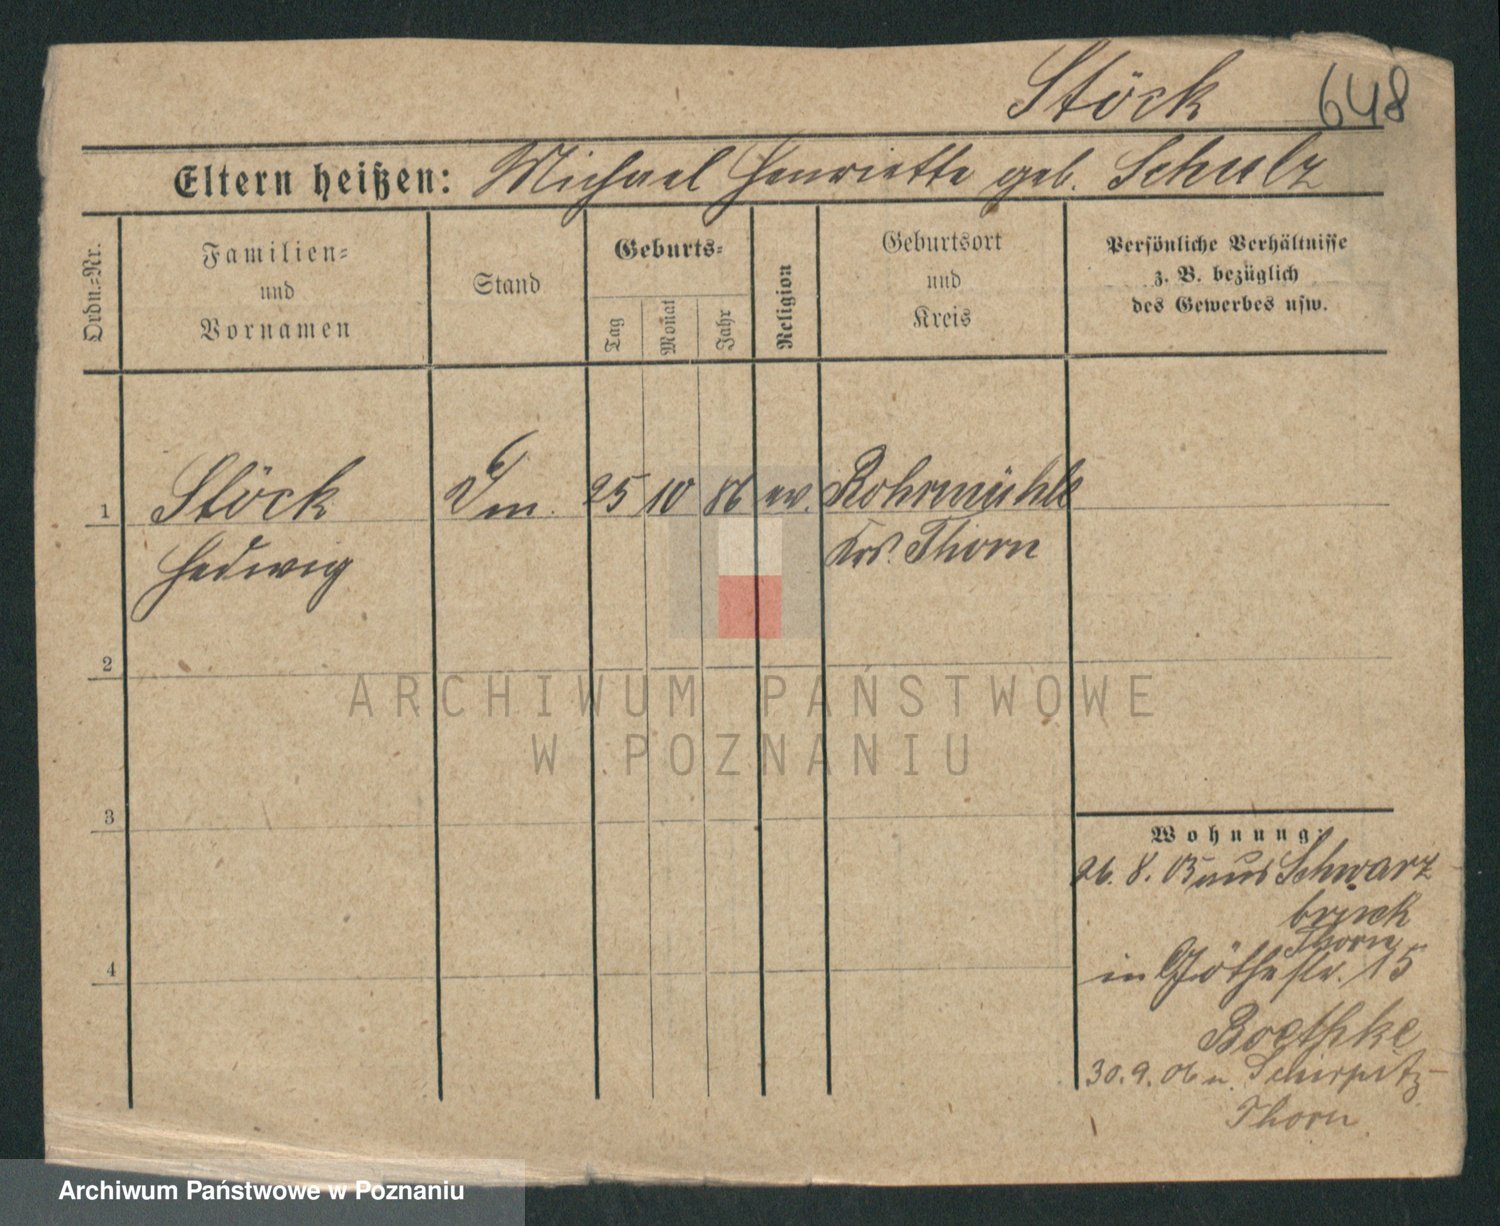 Stöck 648
Eltern heißen: Michael Henriette geb. Schulz
Ordn.-Nr.
Familien-
und
Vornamen
Stand
Geburts-
Tag
Monat
Jahr
Religion
Geburtsort
und
Kreis
Persönliche Verhältnisse
z. B. bezüglich
des Gewerbes usw.
1 Stöck 25 10 86 ev. Rohrmühle
Hedwig Krs. Thorn
2
ARCHIWUM PAŃSTWOWE
W POZNANIU
3
Wohnung:
26. 8. 05 aus Schwarz
bruck
Thorn
in Göthestr. 15
Boethke
30. 9. 06 n. Schirpitz-
Thorn
4
Archiwum Państwowe w Poznaniu